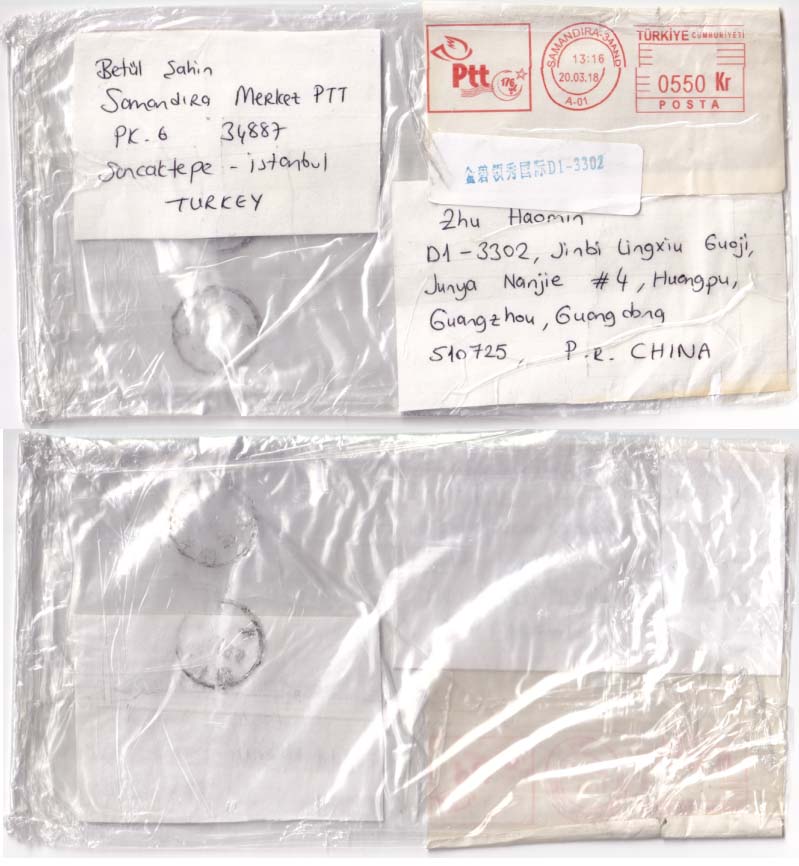 Betül Sahin
Samandıra Merkez PTT
PK. 6 34887
Sancaktepe - istanbul
TURKEY
Ptt
176
SAMANDIRA-34AND
13:16
20.03.18
A-01
TÜRKİYE CUMHURİYETİ
0550 Kr
POSTA
金碧领秀国际D1-3302
Zhu Haomin
D1-3302, Jinbi Lingxiu Guoji,
Junya Nanjie #4, Huangpu,
Guangzhou, Guangdong
510725, P.R. CHINA